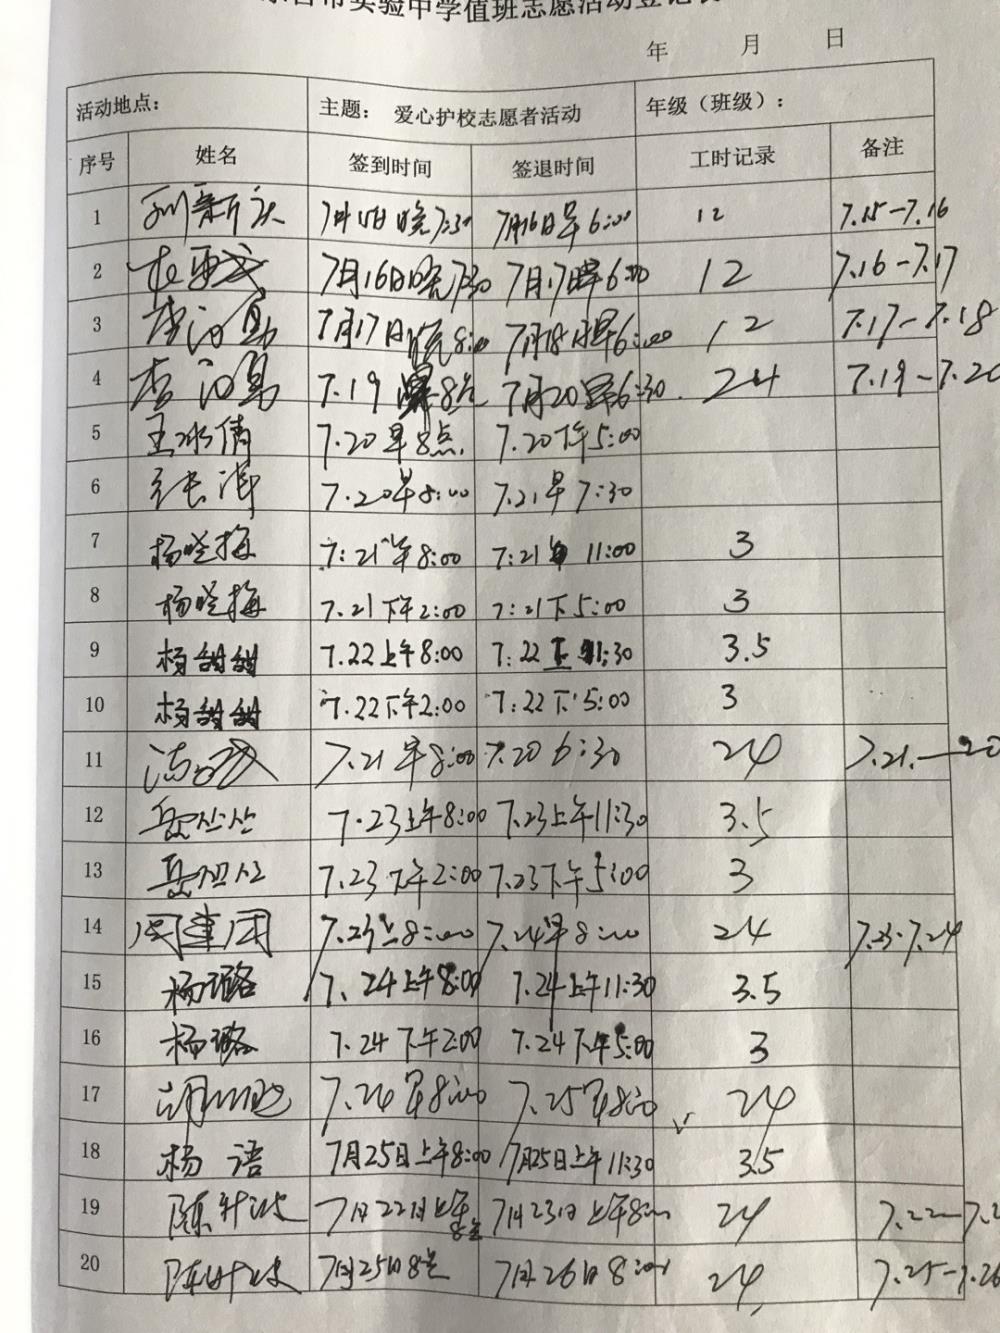 市实验中学值班志愿活动登记表
年 月 日
活动地点： 主题： 爱心护校志愿者活动 年级（班级）：
序号 姓名 签到时间 签退时间 工时记录 备注
1 7月15日晚7:30 7月16日早6:00 12 7.15-7.16
2 7月16日晚7:30 7月17日早6:30 12 7.16-7.17
3 7月17日晚8:00 7月18日早6:00 12 7.17-7.18
4 7.19 8点 7月20早6:30 24 7.19-7.20
5 王冰倩 7.20早8点 7.20下午5:00
6 张涛 7.20早8:00 7.21早7:30
7 杨晓梅 7:21上午8:00 7:21 11:00 3
8 杨晓梅 7.21下午2:00 7:21下5:00 3
9 杨甜甜 7.22上午8:00 7:22上11:30 3.5
10 杨甜甜 7.22下午2:00 7:22下5:00 3
11 7.21早8:00 7.20 6:30 24 7.21.-20
12 岳丛丛 7.23上午8:00 7.23上午11:30 3.5
13 7.23下午2:00 7.23下午5:00 3
14 周建团 7.23上8:00 7.24早8:00 24 7.23-7.24
15 杨璐 7.24上午8:00 7.24上午11:30 3.5
16 杨璐 7.24下午2:00 7.24下午5:00 3
17 7.24早8:00 7.25早8:00 24
18 杨语 7月25日上午8:00 7月25日上午11:30 3.5
19 陈升波 7月22日上午8点 7月23日上午8:00 24 7.22-7.2
20 陈升波 7月25日8点 7月26日8:00 24 7.25-7.26